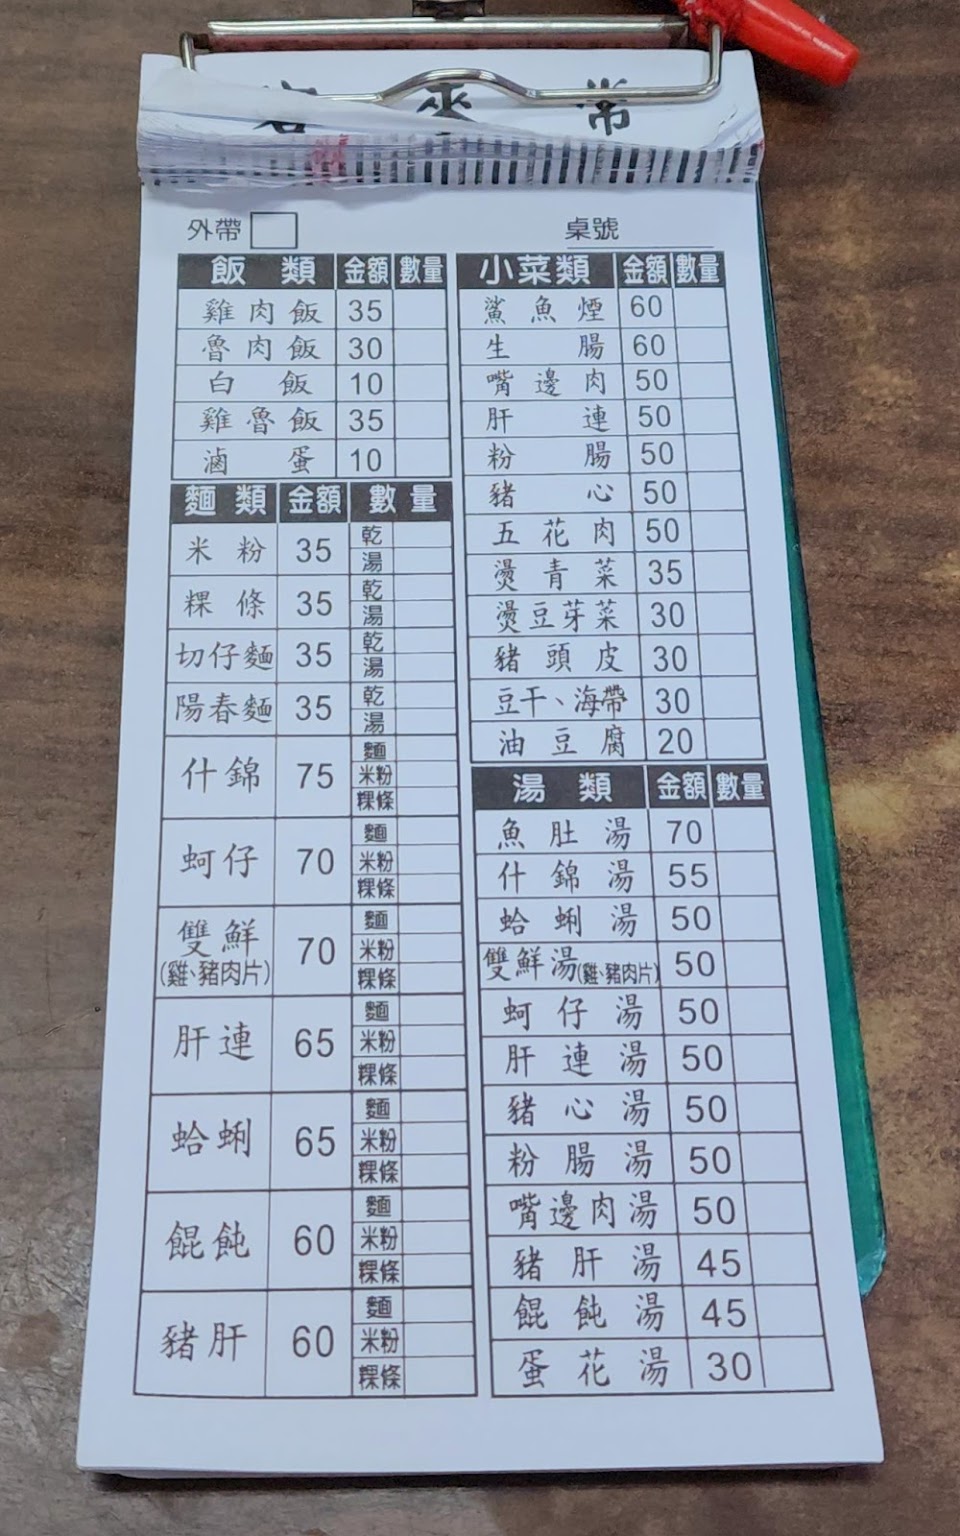 常來客
外帶
桌號
飯類 金額 數量
雞肉飯 35
魯肉飯 30
白飯 10
雞魯飯 35
滷蛋 10
麵類 金額 數量
米粉 35 乾 湯
粿條 35 乾 湯
切仔麵 35 乾 湯
陽春麵 35 乾 湯
什錦 75 麵 米粉 粿條
蚵仔 70 麵 米粉 粿條
雙鮮(雞、豬肉片) 70 麵 米粉 粿條
肝連 65 麵 米粉 粿條
蛤蜊 65 麵 米粉 粿條
餛飩 60 麵 米粉 粿條
豬肝 60 麵 米粉 粿條
小菜類 金額 數量
鯊魚煙 60
生腸 60
嘴邊肉 50
肝連 50
粉腸 50
豬心 50
五花肉 50
燙青菜 35
燙豆芽菜 30
豬頭皮 30
豆干、海帶 30
油豆腐 20
湯類 金額 數量
魚肚湯 70
什錦湯 55
蛤蜊湯 50
雙鮮湯(雞、豬肉片) 50
蚵仔湯 50
肝連湯 50
豬心湯 50
粉腸湯 50
嘴邊肉湯 50
豬肝湯 45
餛飩湯 45
蛋花湯 30